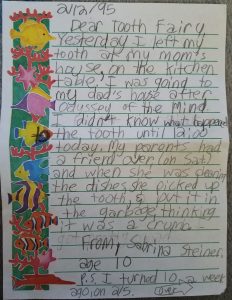 2/12/95
Dear Tooth Fairy,
Yesterday I left my
tooth at my mom's
house, on the kitchen
table. I was going to
my dad's house after
Odyssey of the Mind
I didn't know what happened
the tooth until 2:00
today. My parents had
a friend over (on Sat)
and when she was clearing
the dishes, she picked up
the tooth, & put it in
the garbage, thinking
it was a crumb.
From, Sabrina Steiner,
age 10
P.S. I turned 10 a week
ago, on 2/5. over